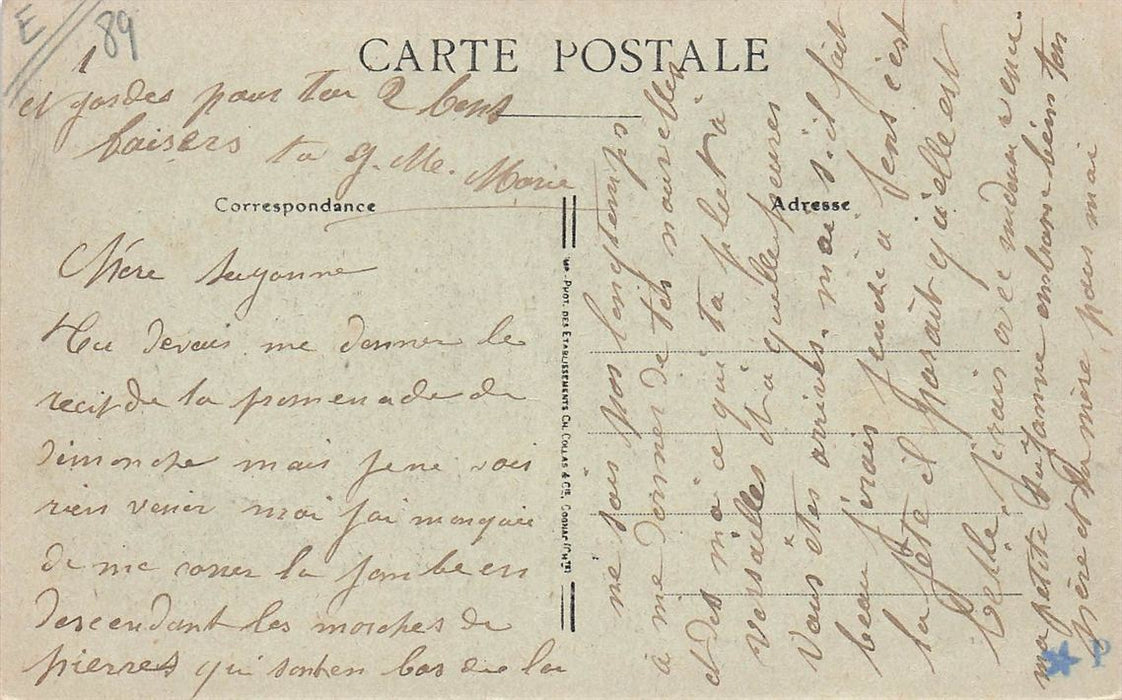 E 89
1
CARTE POSTALE
et gardes pour toi 2 bons
baisers ta G. Me. Marie
Correspondance
Adresse
Chère Suzanne
Tu devais me donner le
recit de la promenade de
dimanche mais je ne vois
rien venir moi j'ai manquée
de me casser la jambe en
descendant les marches de
pierres qui sont en bas de la
PHOT. DES ETABLISSEMENTS CH. COLLAS & CIE, COGNAC (CHTE)
me sois pas longtemps
à me donner de tes nouvelles
et dis moi ce qui ta plut à
versailles et à quelle heures
Vous êtes arrivés. mais s'il fait
beau j'irais jeudi a Sens c'est
la fête il parait qu'elle est
belle, j'irais or ce madame venu
ma petite Suzanne embrasse bien ton
père et ta mère pour moi
P